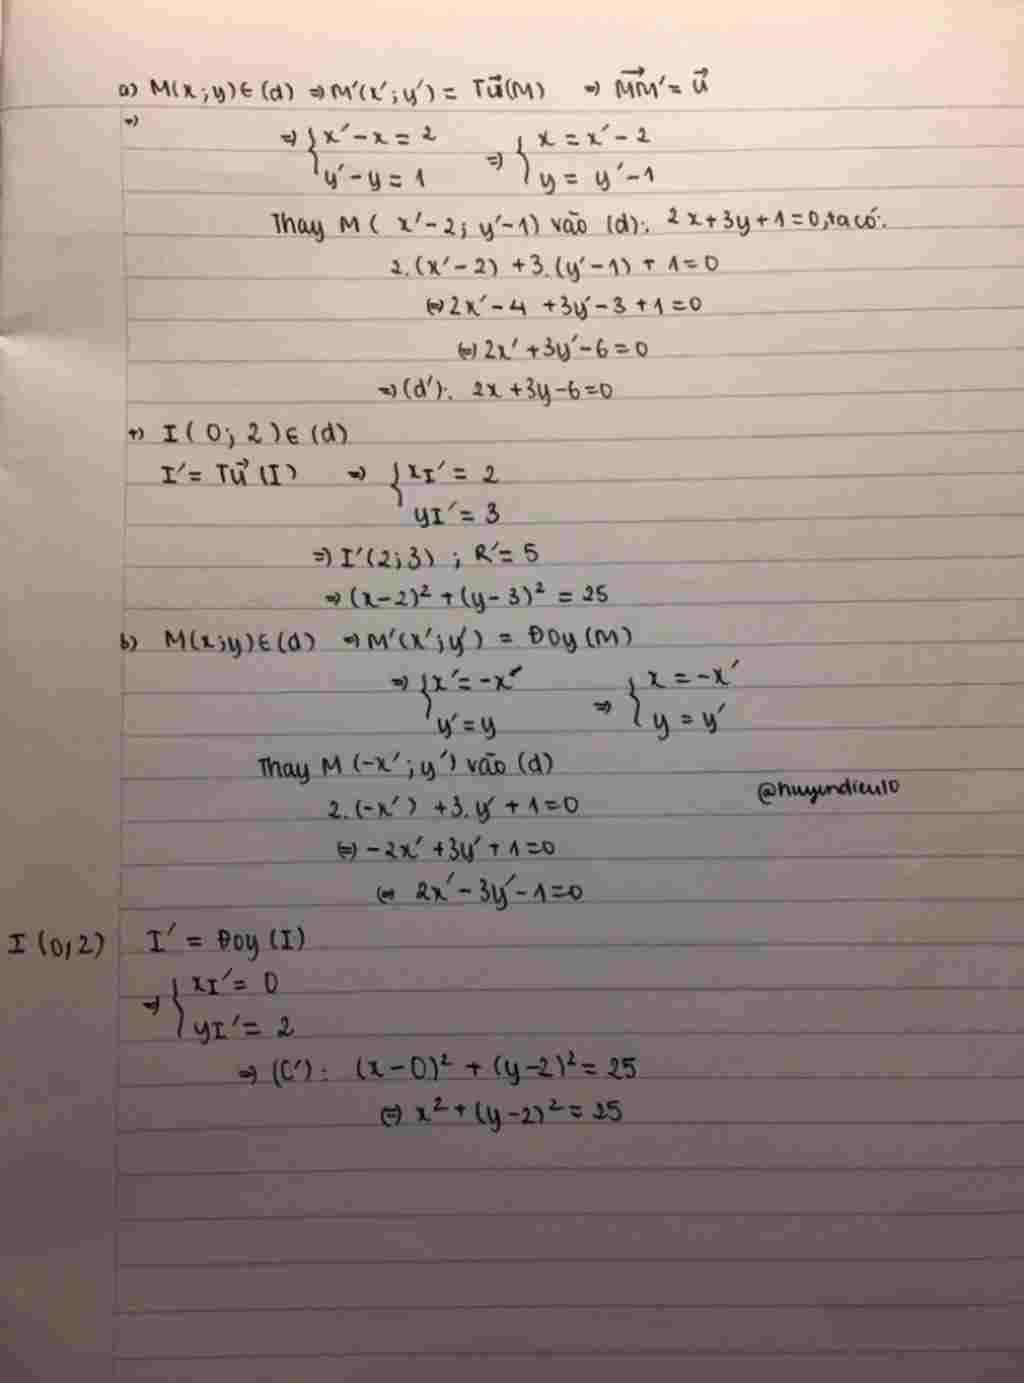 a) M(x;y)∈(d) ⇒ M'(x';y') = Tu⃗(M) ⇒ MM'⃗ = u⃗
+)
⇒ { x' - x = 2 ⇒ { x = x' - 2
y' - y = 1 y = y' - 1
Thay M( x' - 2; y' - 1) vào (d): 2x + 3y + 1 = 0, ta có:
2.(x' - 2) + 3.(y' - 1) + 1 = 0
⇔ 2x' - 4 + 3y' - 3 + 1 = 0
⇔ 2x' + 3y' - 6 = 0
⇒ (d'): 2x + 3y - 6 = 0
+) I( 0; 2)∈(d)
I' = Tu⃗(I) ⇒ { xI' = 2
yI' = 3
⇒ I'(2;3) ; R' = 5
⇒ (x-2)² + (y-3)² = 25
b) M(x;y)∈(d) ⇒ M'(x';y') = ĐOy(M)
⇒ { x' = -x ⇒ { x = -x'
y' = y y = y'
Thay M(-x'; y') vào (d)
2.(-x') + 3.y' + 1 = 0
@huyendieu10
⇔ -2x' + 3y' + 1 = 0
⇔ 2x' - 3y' - 1 = 0
I (0;2) I' = ĐOy (I)
⇒ { xI' = 0
yI' = 2
⇒ (C'): (x-0)² + (y-2)² = 25
⇔ x² + (y-2)² = 25